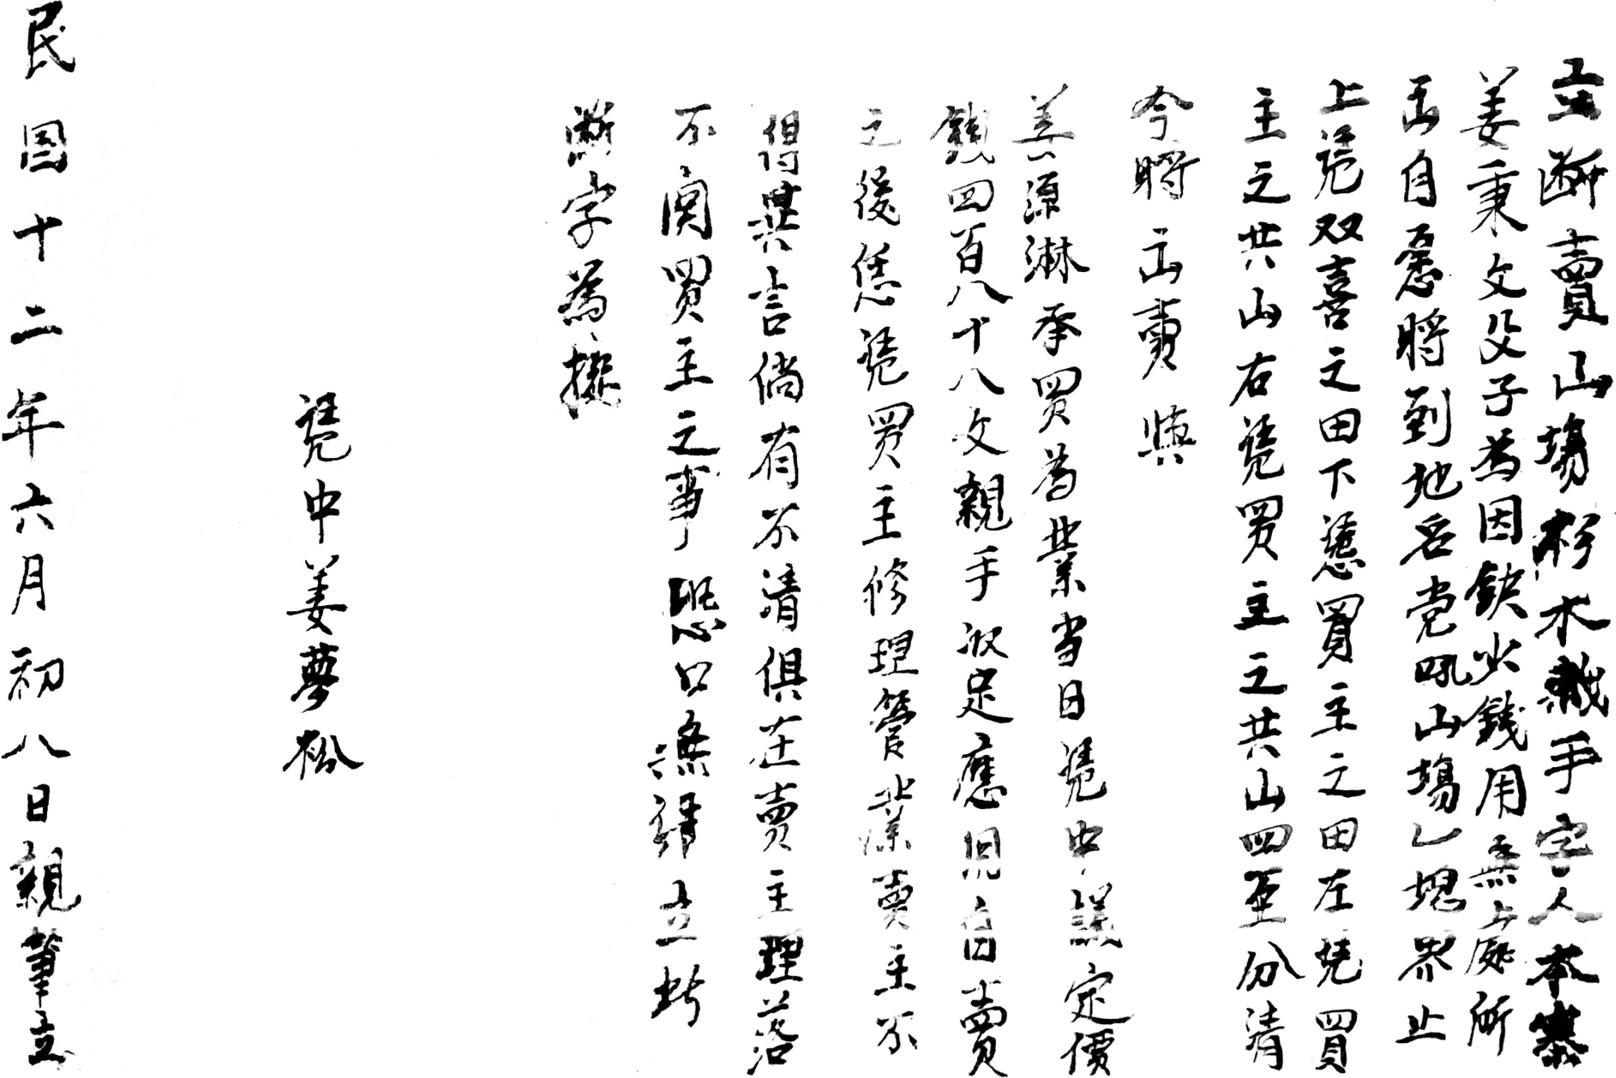 立断賣山塲杉木栽手字人本寨
姜秉文父子為因缺少錢用無處所
出自愿將到地名党吼山塲乚塊界止
上凭双喜之田下憑買主之田左凭買
主之共山右凭買主之共山四至分清
今將出賣與
姜源淋承買為業当日凭中議定價
錢四百八十八文親手収足應用自賣
之後恁凭買主修理管業賣主不
得異言倘有不清俱在賣主理落
不関買主之事恐口無憑立此
断字為據
凭中姜夢松
民国十二年六月初八日親筆立